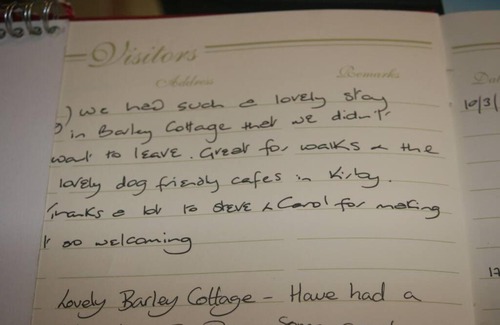 Visitors
Address Remarks
) we had such a lovely stay 10/3/
in Barley Cottage that we didn't
want to leave. Great for walks & the
lovely dog friendly cafes in Kirby.
Thanks a lot to Steve & Carol for making
it so welcoming
17
Lovely Barley Cottage - Have had a